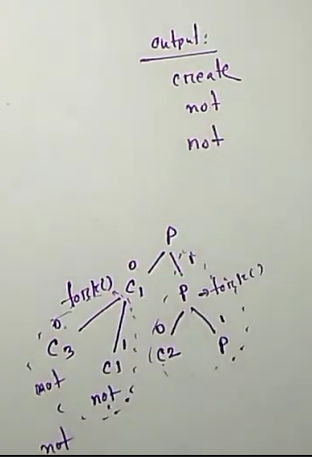 output:
create
not
not
P
0
fork() C1 1
P → fork()
0 0 1
C3 1 C2 P
C1
not not
not